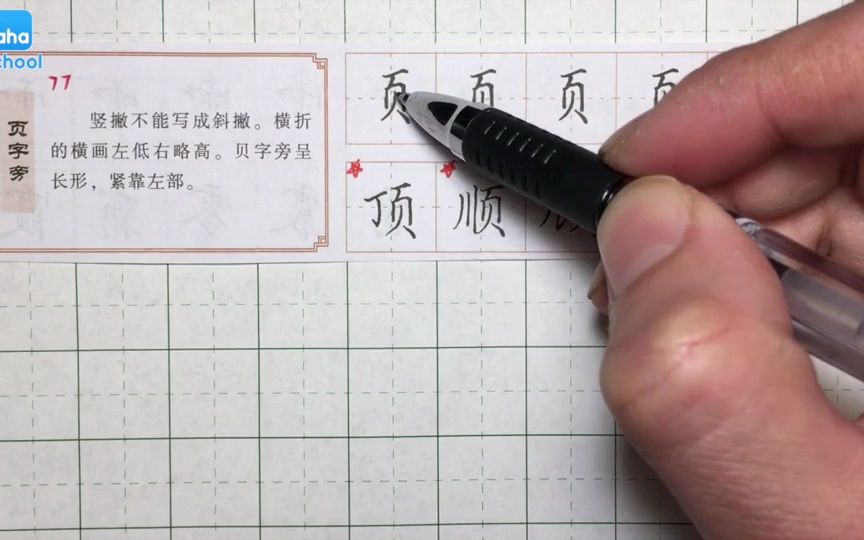 aha
chool
77
页字旁
竖撇不能写成斜撇。横折
的横画左低右略高。贝字旁呈
长形，紧靠左部。
页 页 页 页
顶 顺